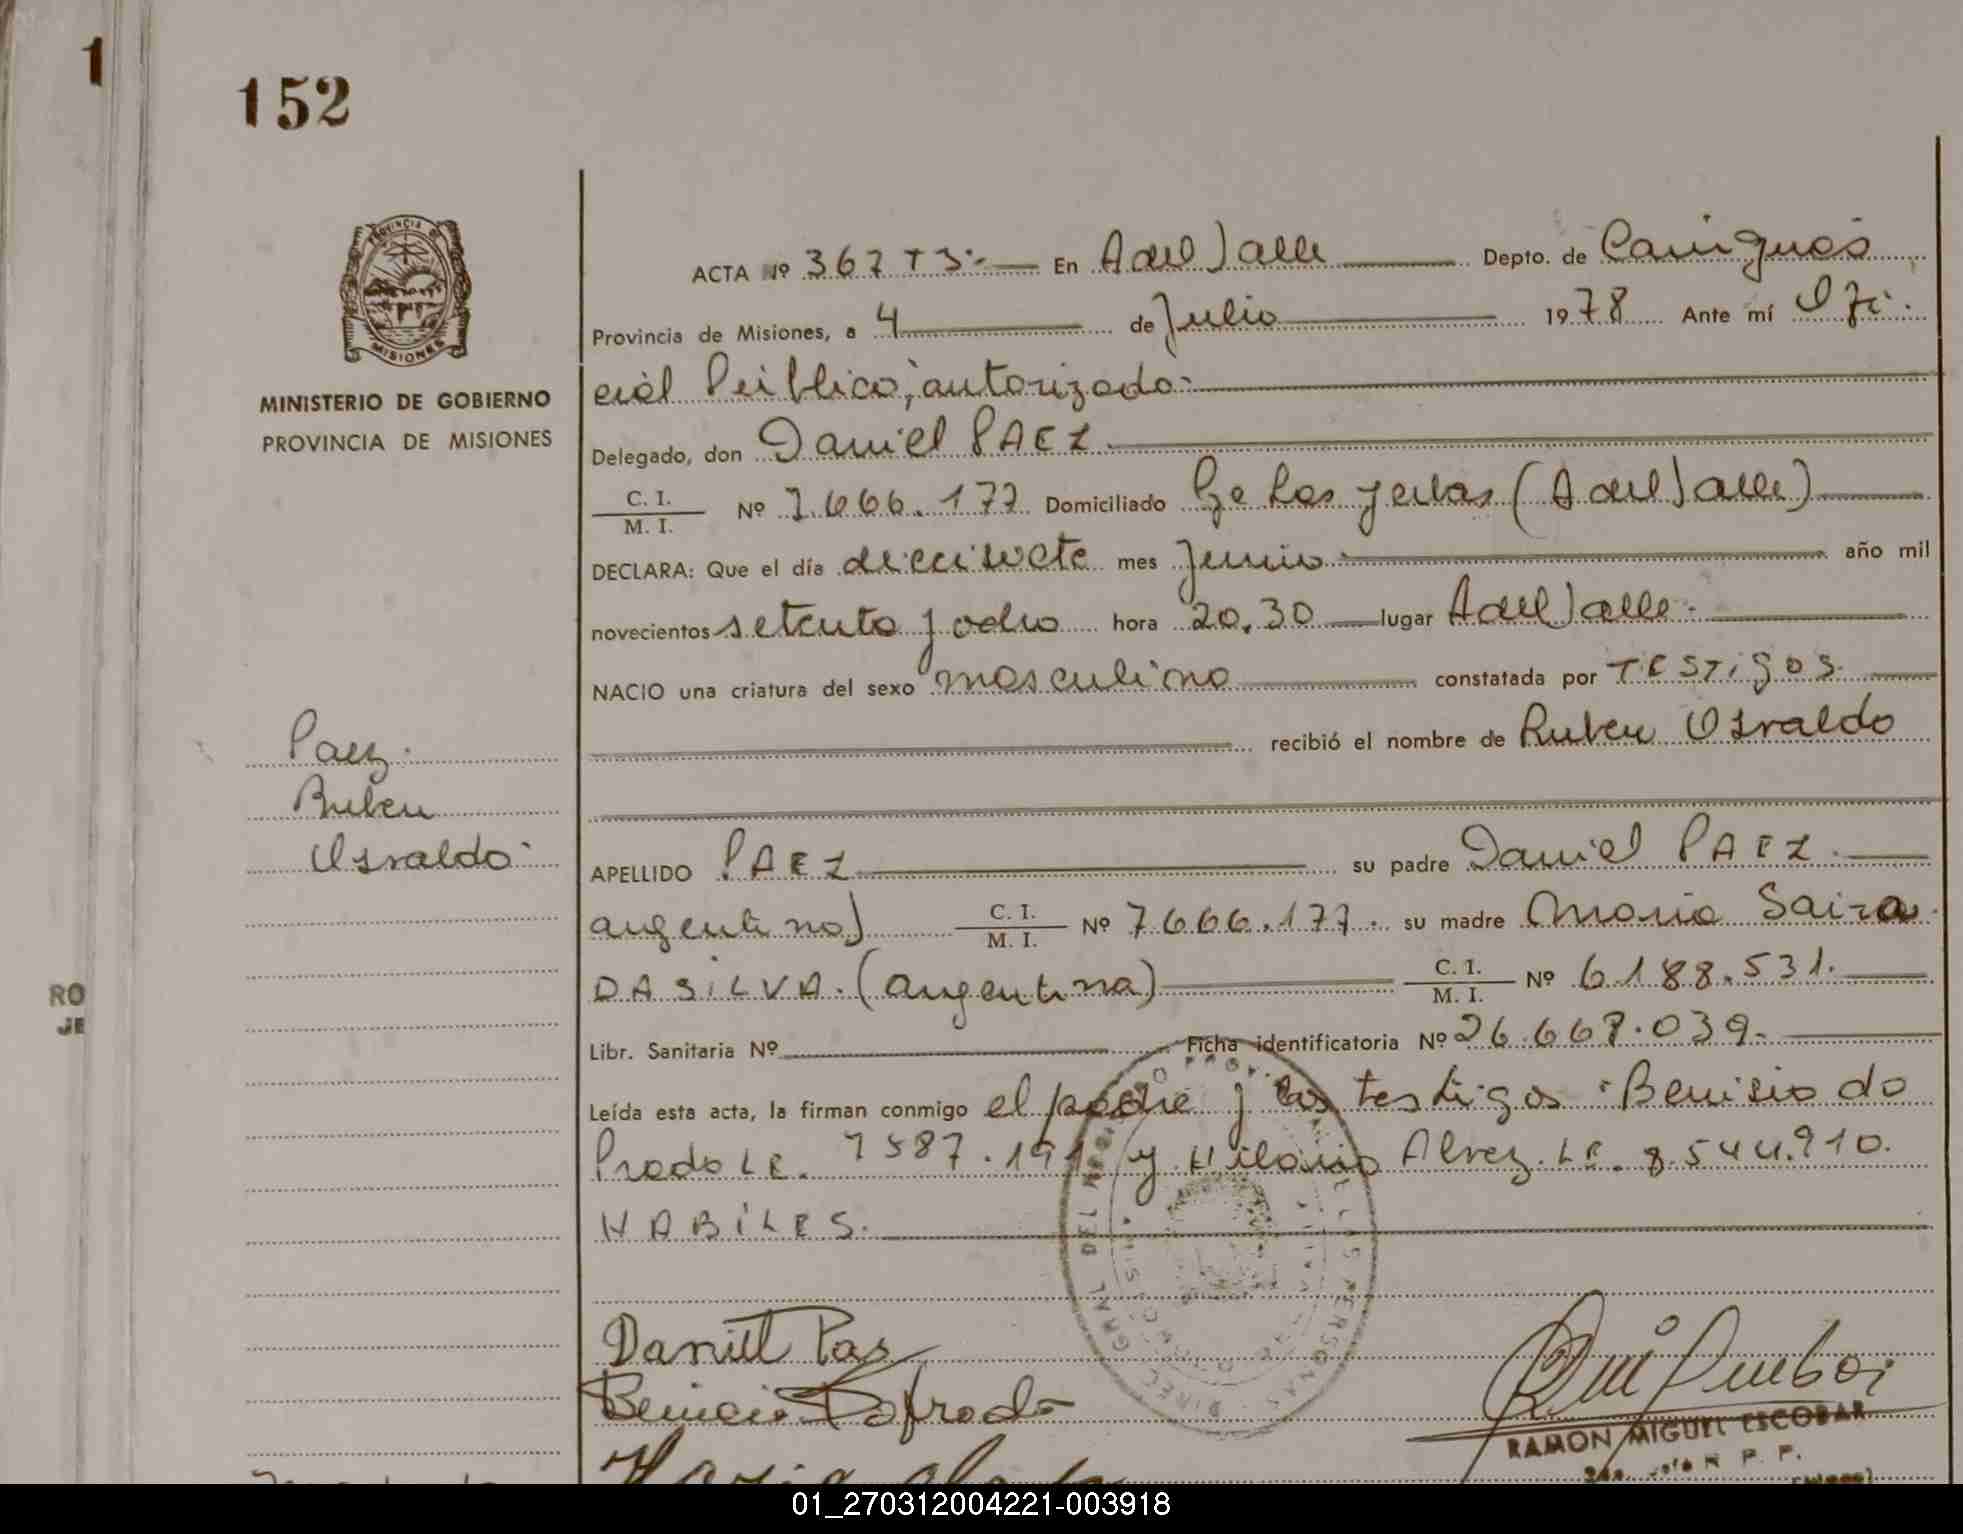 1
152
PROVINCIA DE
MISIONES
MINISTERIO DE GOBIERNO
PROVINCIA DE MISIONES
ACTA Nº 367 T 3:- En A del Valle Depto. de Cainguás
Provincia de Misiones, a 4 de Julio 1978 Ante mí Ofi-
cial Público, autorizado-
Delegado, don Daniel PAEZ
C. I.
M. I.
Nº 7.666.177 Domiciliado Ge Las yerbas (A del Valle)
DECLARA: Que el día diecisiete mes Junio año mil
novecientos setenta y ocho hora 20,30 lugar A del Valle.
NACIO una criatura del sexo masculino constatada por TESTIGOS.
recibió el nombre de Ruben Osvaldo
Paez.
Ruben
Osvaldo
APELLIDO PAEZ su padre Daniel PAEZ.
argentino) C. I.
M. I.
Nº 7.666.177. su madre Maria Saira
DA SILVA. (argentina) C. I.
M. I.
Nº 6.188.531.
RO
JE
Libr. Sanitaria Nº Ficha identificatoria Nº 26.667.039-
Leída esta acta, la firman conmigo el padre y los testigos Benisio do
Prado LE. 7587.191 y Hilario Alvez. LE. 8.544.910.
HABILES.
Daniel Paz
Benicio Doprado
RAMON MIGUEL ESCOBAR
R. P. P.
01_270312004221-003918